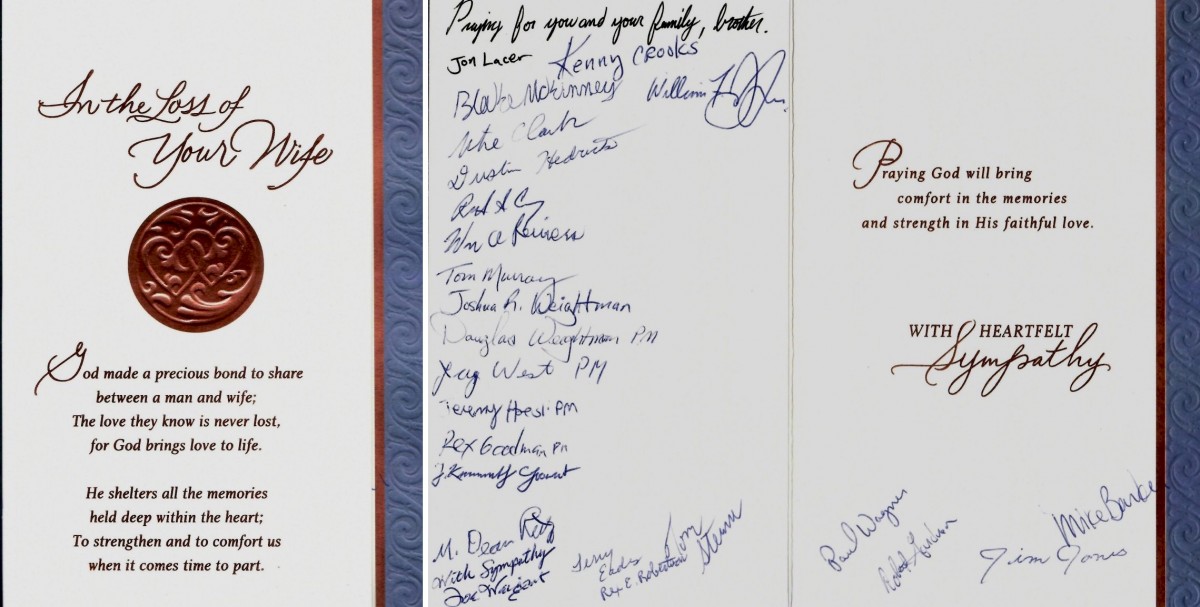 In the Loss of
Your Wife
God made a precious bond to share
between a man and wife;
The love they know is never lost,
for God brings love to life.
He shelters all the memories
held deep within the heart;
To strengthen and to comfort us
when it comes time to part.
Praying for you and your family, brother.
Jon Lacer
Kenny Crooks
Blake McKinney
William
Clark
Dustin
Wm A
Tom Murray
Joshua R. Weightman
Douglas Weightman PM
West PM
Jeremy PM
Rex Goodman PM
M. Dean
With Sympathy
Joe
Terry
Eads
Rex E. Robertson
Tom
Praying God will bring
comfort in the memories
and strength in His faithful love.
WITH HEARTFELT
Sympathy
Paul Wagner
Mike Barke
Jim Jones